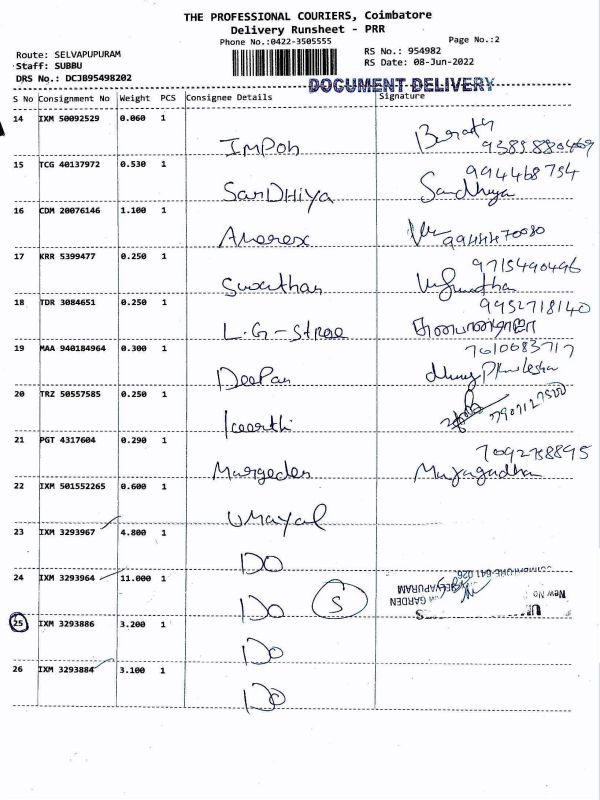 THE PROFESSIONAL COURIERS, Coimbatore
Delivery Runsheet - PRR
Phone No.:0422-3505555
Page No.:2
Route: SELVAPUPURAM
Staff: SUBBU
DRS No.: DCJB95498202
RS No.: 954982
RS Date: 08-Jun-2022
DOCUMENT DELIVERY
S No Consignment No Weight PCS Consignee Details Signature
14 IXM 50092529 0.060 1
Impoh
15 TCG 40137972 0.530 1
994468754
SanDHiya Sandhiya
16 CDM 20076146 1.100 1
9944470080
17 KRR 5399477 0.250 1
9715490496
18 TDR 3084651 0.250 1
9952718140
L.G-Stroe
19 MAA 940184964 0.300 1
7610683717
DeePan
20 TRZ 50557585 0.250 1
keerthi
21 PGT 4317604 0.290 1
7092758895
22 IXM 501552265 0.600 1
Umayal
23 IXM 3293967 4.800 1
DO
24 IXM 3293964 11.000 1
DO S
SELVAPURAM
GARDEN
New No
25 IXM 3293886 3.200 1
DO
26 IXM 3293884 3.100 1
DO